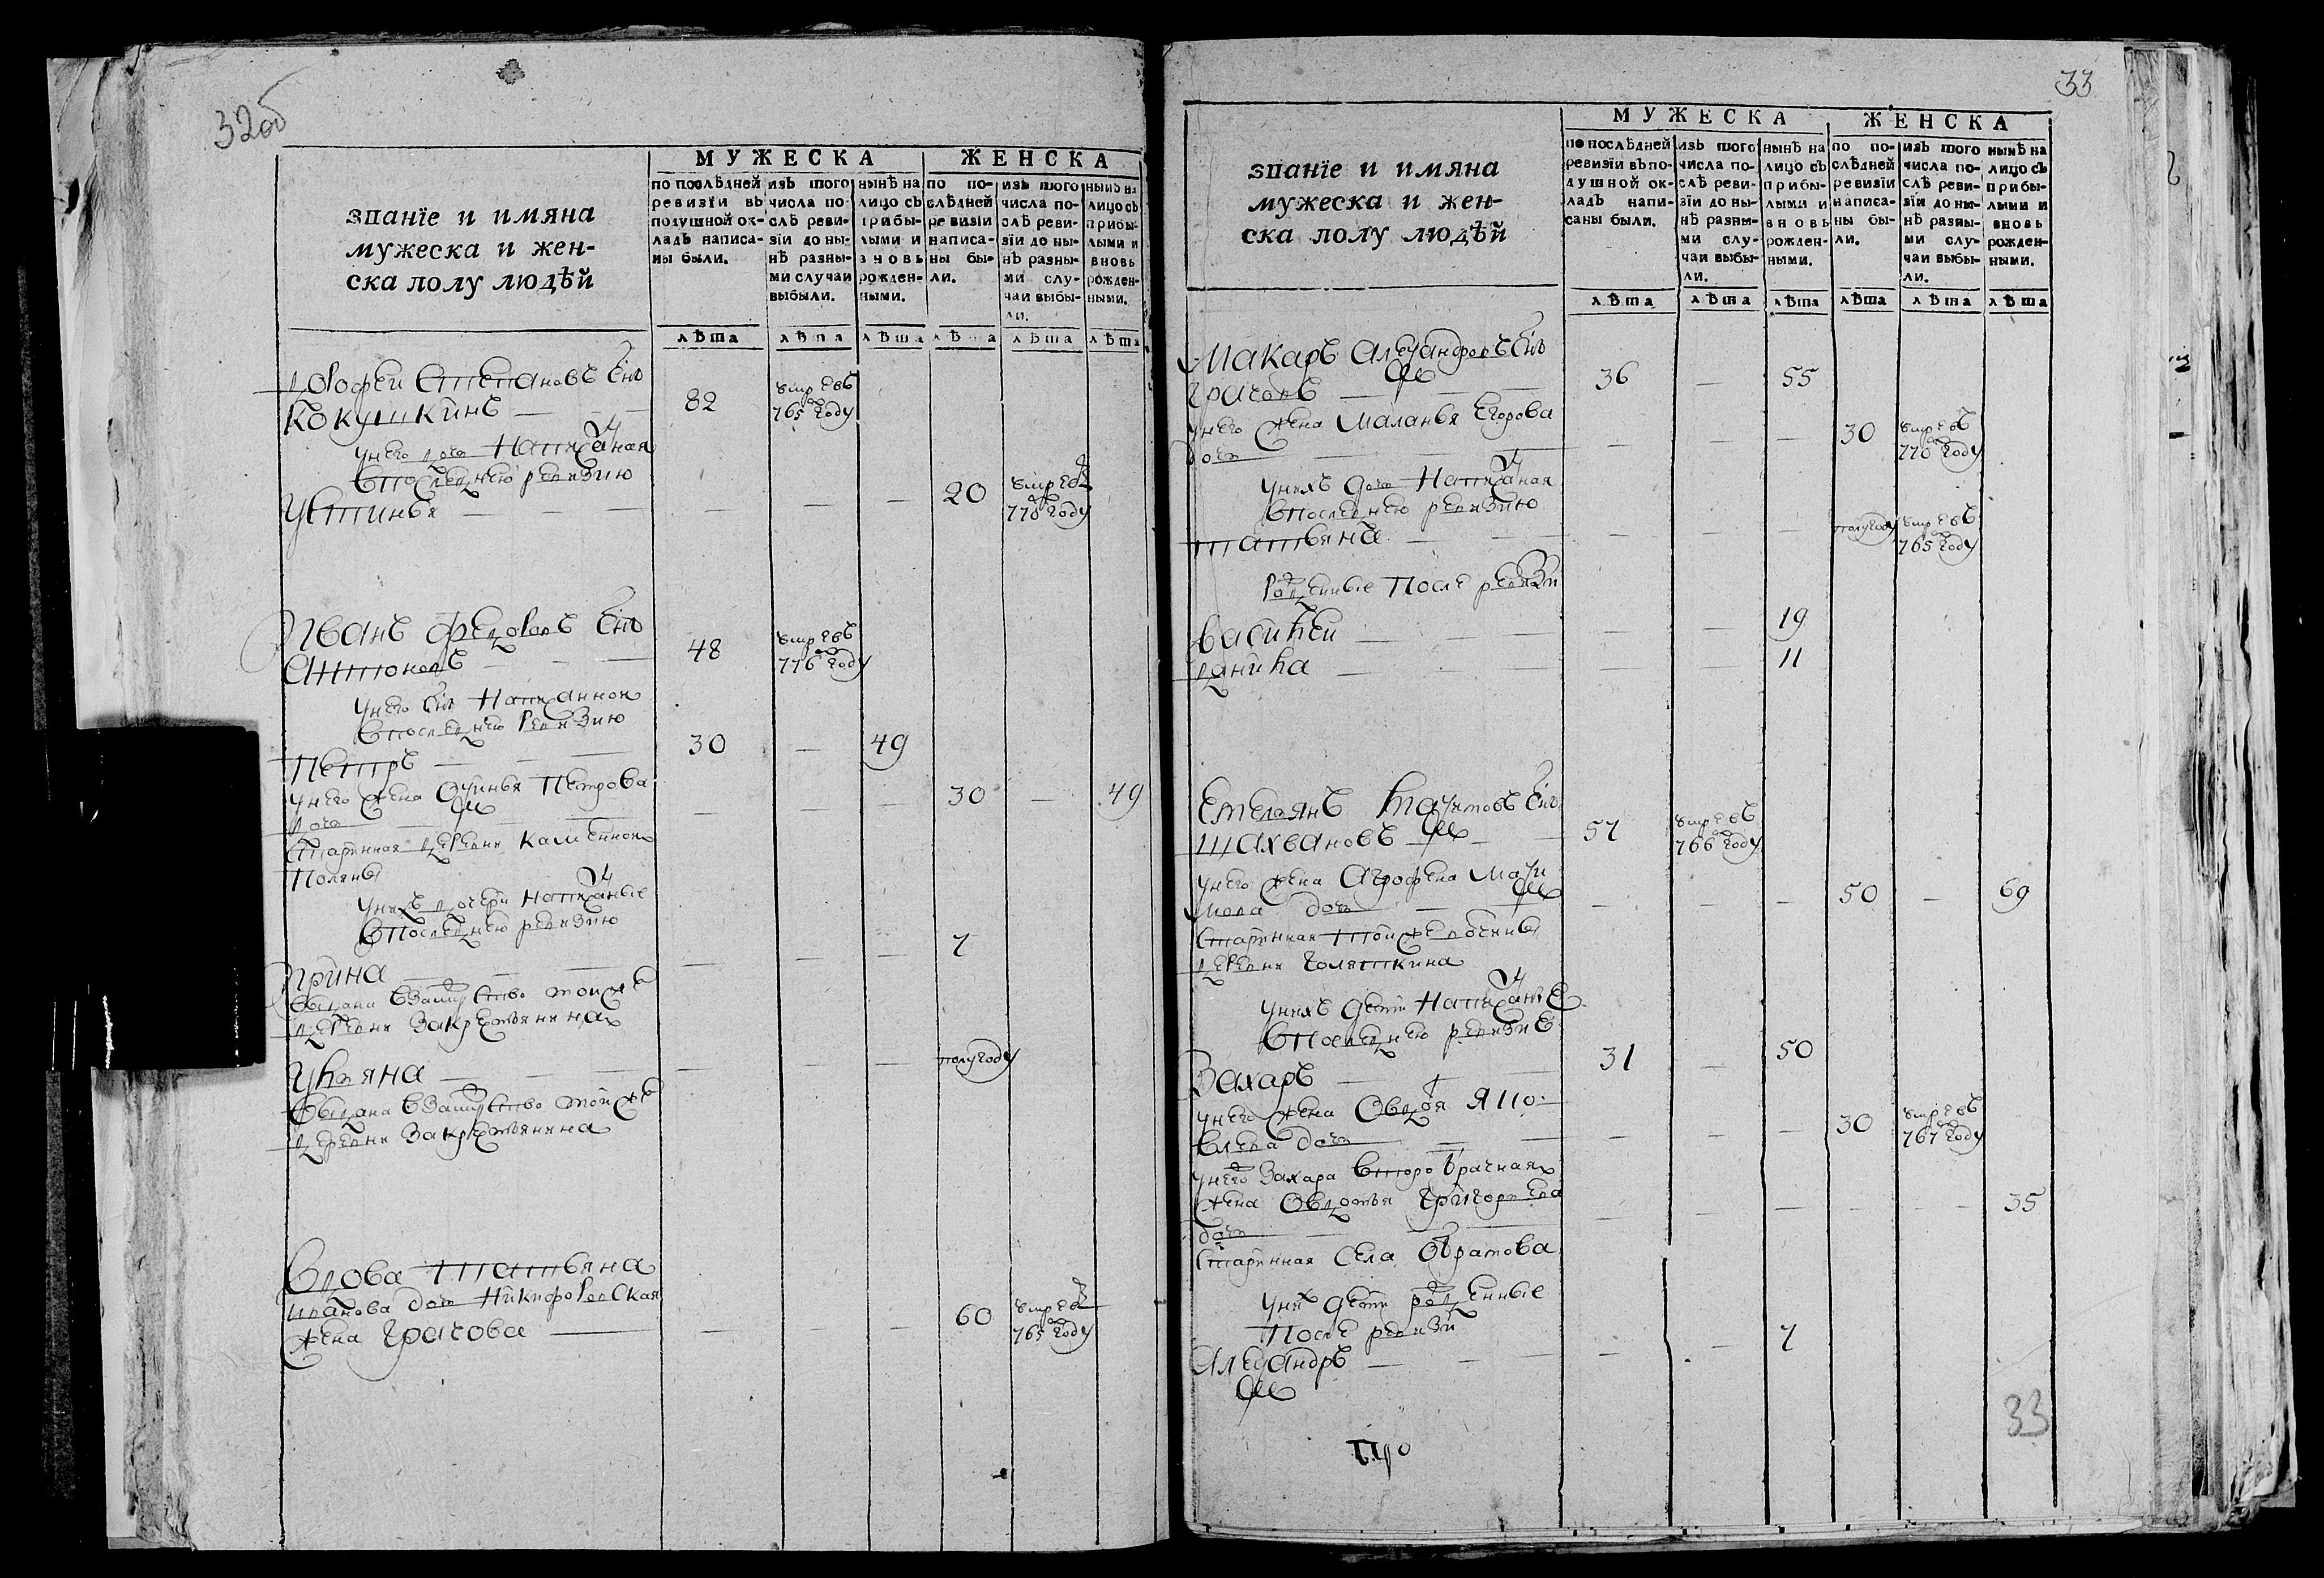 32об
МУЖЕСКА ЖЕНСКА
званїе и имяна
мужеска и жен-
ска полу людѣй
по послѣдней ревизїи въ подушной ок-ладъ написа-ны были.
изъ того числа по-слѣ реви-зїи до ны-нѣ разны-ми случаи выбыли.
нынѣ на лицо съ прибы-лыми и вновь рожден-ными.
по по-слѣдней ревизїи написа-ны бы-ли.
изъ того числа по-слѣ реви-зїи до ны-нѣ разны-ми слу-чаи выбы-ли.
нынѣ на лицо съ прибы-лыми и вновь рожден-ными.
лѣта лѣта лѣта лѣта лѣта лѣта
дорофеи Степановъ Снъ
Кокушкинъ 82 умре въ 765 году
унего доч написаная
Впоследнею ревизию
устинья 20 умре в 770 году
Иванъ федоровъ Снъ
Антоновъ 48 умре въ 776 году
унего Снъ написанной
Впоследнею ревизию
Петръ 30 49
унего жена Петрова
доч 30 49
Старинная деревни каменной
Поляны
унихъ дочери написаные
Впоследнею ревизию
ирина 7
выдана Взамужство тойже
деревни Закрестьянина
ульяна полугоду
Выдана Взамужство тойже
деревни Закрестьянина
Вдова Татьяна
иванова доч Никифоровская
жена Грачова 60 умре в 765 году
33
МУЖЕСКА ЖЕНСКА
званїе и имяна
мужеска и жен-
ска полу людѣй
по послѣдней ревизїи въ по-душной ок-ладъ напи-саны были.
изъ того числа по-слѣ реви-зїи до ны-нѣ разны-ми слу-чаи выбы-ли.
нынѣ на лицо съ прибы-лыми и вновь рожден-ными.
по по-слѣдней ревизїи написа-ны бы-ли.
изъ того числа по-слѣ реви-зїи до ны-нѣ разны-ми слу-чаи выбы-ли.
нынѣ на лицо съ прибы-лыми и вновь рожден-ными.
лѣта лѣта лѣта лѣта лѣта лѣта
Макаръ Александровъ Снъ
Грачовъ 36 55
унего жена Маланья Егорова
доч 30 умре въ 770 году
унихъ доч написаная
Впоследнею ревизию
татьяна полугоду умре въ 765 году
Рожденные После ревизи
василеи 19
данила 11
Емельянъ Снъ
Шахвановъ 57 умре въ 766 году
унего жена Агрофена Макси
мова доч 50 69
Старинная тойже вотчины
деревни Голяткина
унихъ дети написаные
Впоследнею ревизие
Захаръ 31 50
унего жена Овдотя Яко
влева доч 30 умре въ 767 году
унего Захара Второбрачная
жена Овдотья Григорьева
доч 35
Старинная Села Обратова
уних дети рожденные
После ревизи
Александръ 7
33